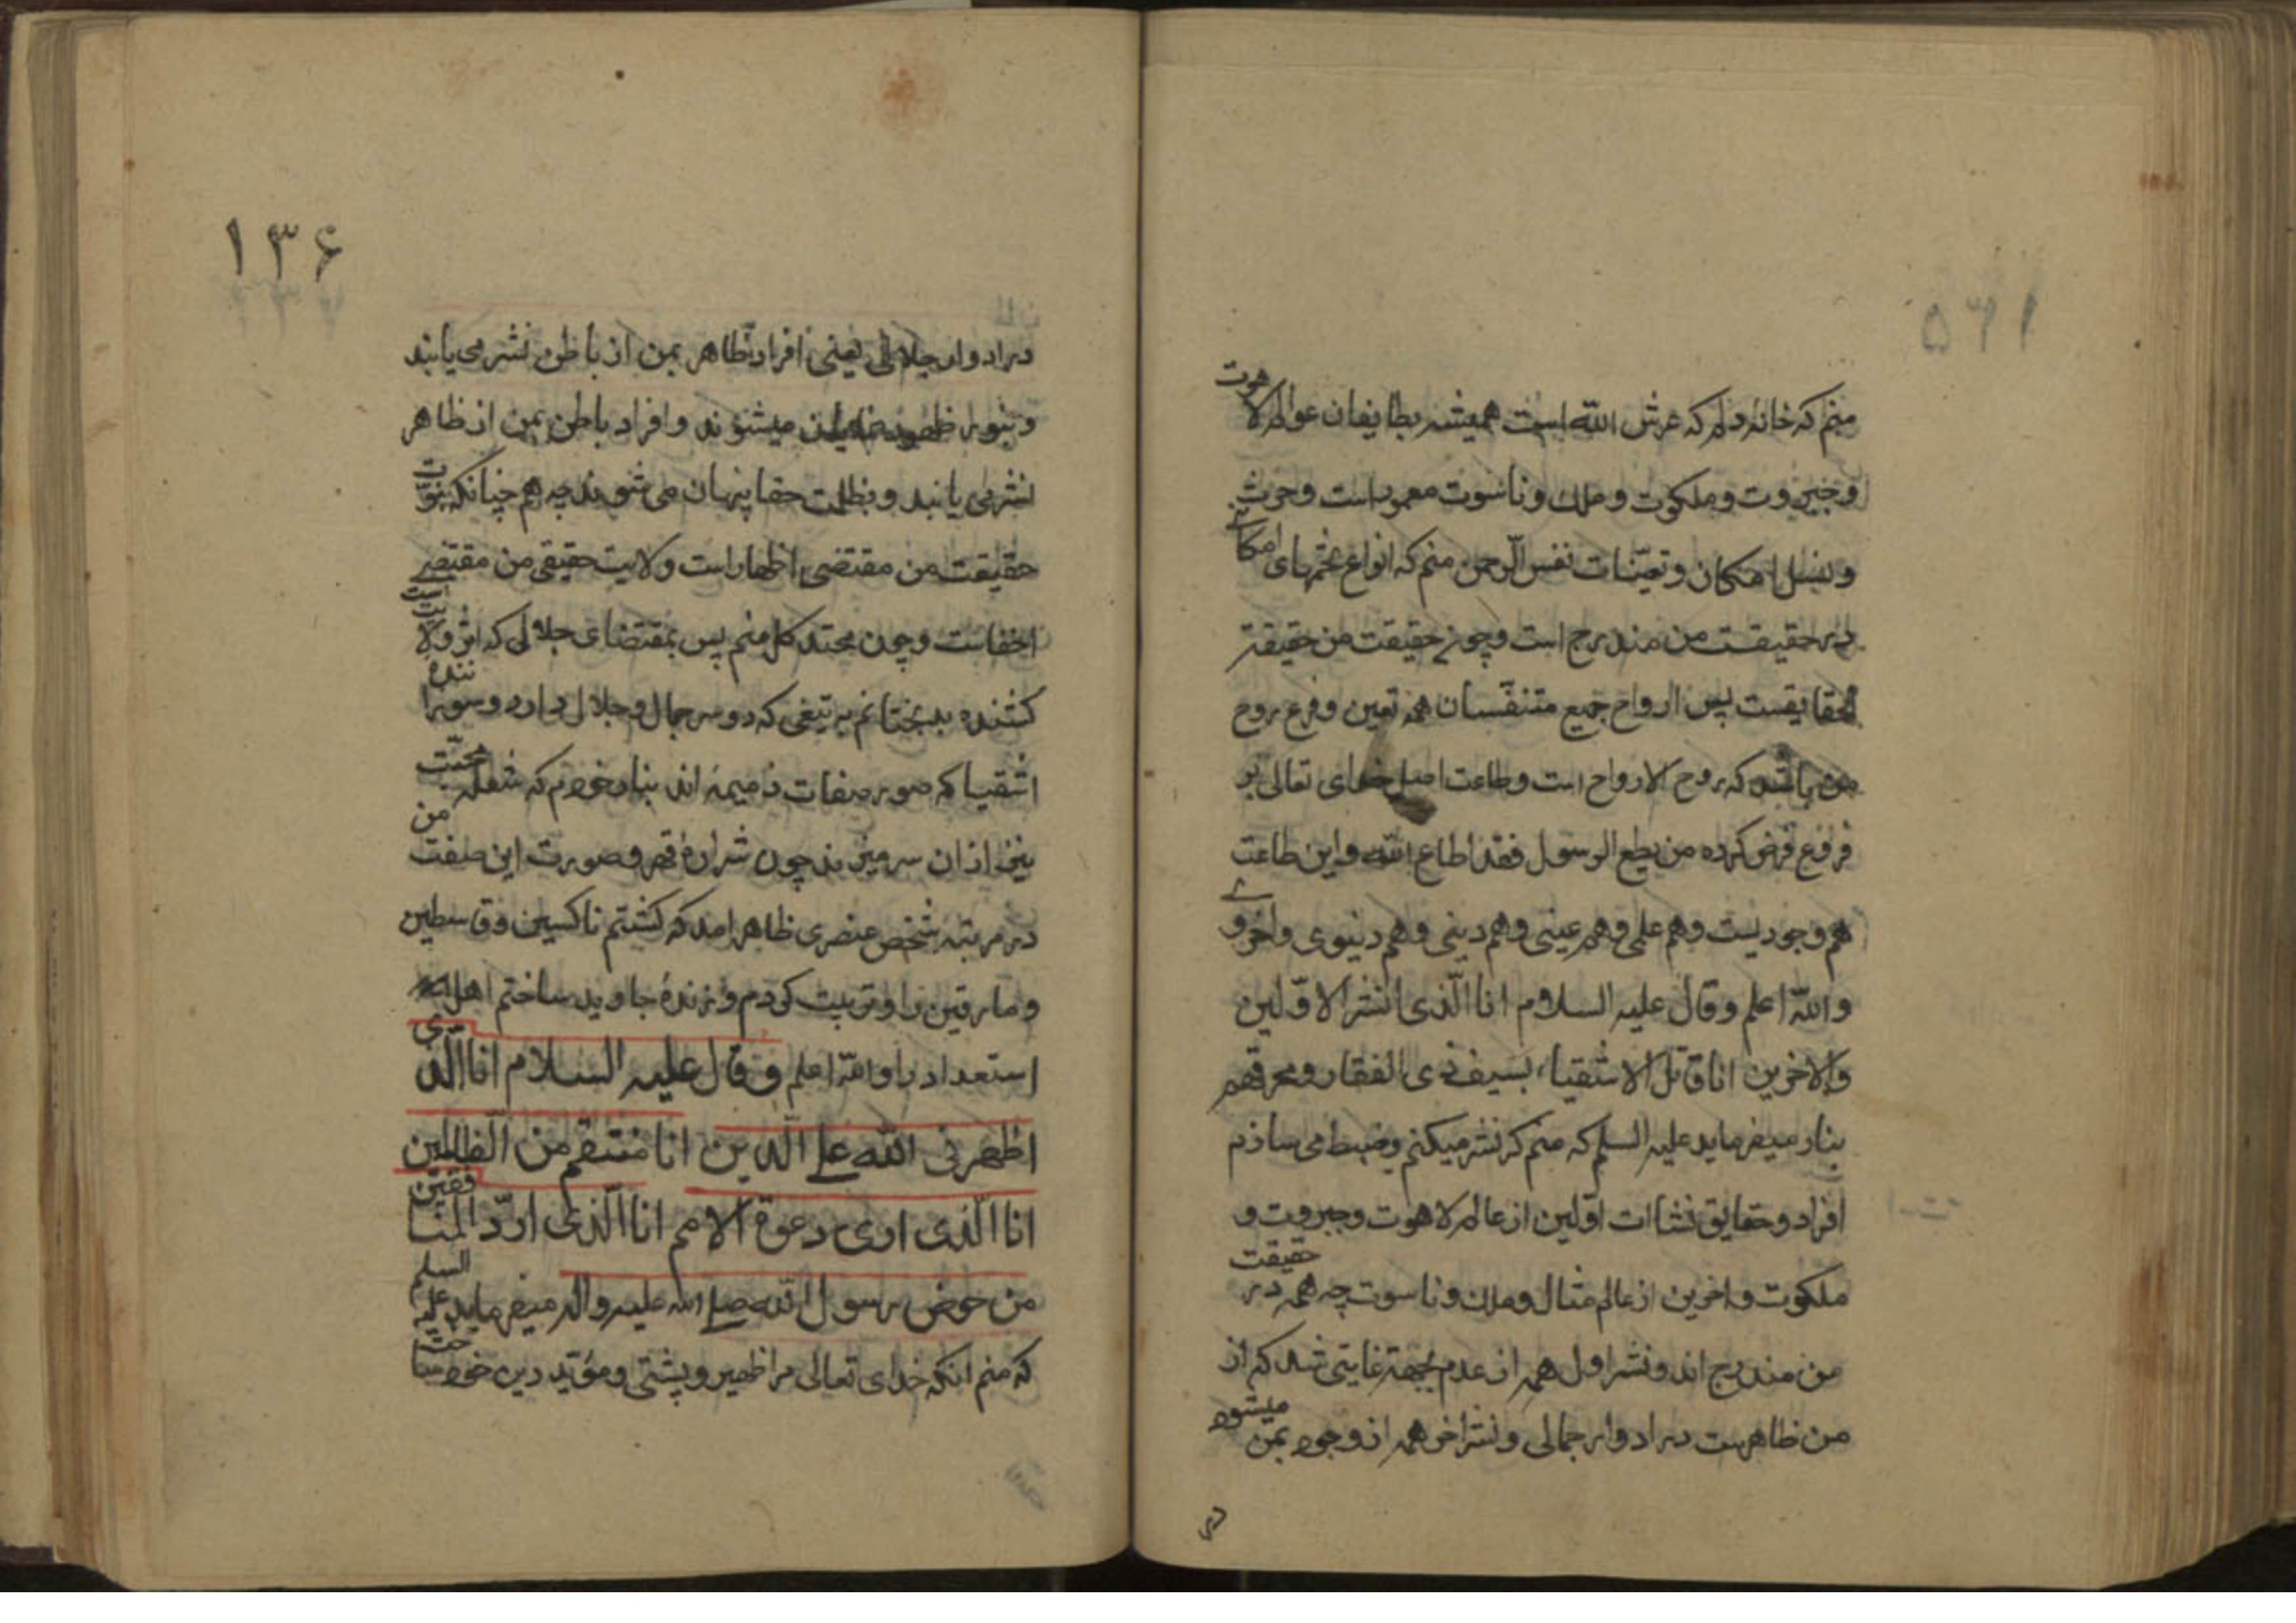 منم که خانهٔ دلم که عرش الله است همیشه بطایفان عوالم لاهوت
و جبروت و ملکوت و ملک و ناسوت معمور است و حرث
و نسل امکان و تعیّنات نفس الرّحمن منم که انواع تخمهای امکانے
در حقیقت من مندرج است و چون حقیقت من حقیقة
الحقایقست پس ارواح جمیع متنفّسان همه تعین و فرع روح
من باشد که روح الارواح است و طاعت اصل خدای تعالی بر
فروع فرض کرده من یطع الرسول فقد اطاع الله و این طاعت
هم وجودیست و هم علمی و هم عینی و هم دینی و هم دنیوی و اخروے
و اللّه اعلم و قال علیه السلام انا الّذی انشر الاوّلین
و الاخرین انا قاتل الاشقیاء بسیف ذی الفقار و محرقهم
بنار میفرماید علیه السلم که منم که نشر میکنم و ضبط می سازم
افراد و حقایق نشاات اوّلین از عالم لاهوت و جبروت و
ملکوت و اخرین از عالم مثال و ملک و ناسوت چه همه در حقیقت
من مندرج اند و نشر اول همه از عدم بجهة غایتی شد که از
من ظاهرست در ادوار جمالی و نشر اخر همه از وجود بمن میشود
در
۱۳۶
در ادوار جلالی یعنی افراد ظاهر بمن از باطن نشر می یابند
و بنور ظهور نمایان میشوند و افراد باطن بمن از ظاهر
نشر می یابند و بظلمت خفا پنهان می شوند چه هم چنانکه نبوّت
حقیقت من مقتضی اظهار است و ولایت حقیقی من مقتضے
اخفاست و چون محتد کل منم پس بمقتضای جلالی که اثر ولایت است
کشنده بدبختانم به تیغی که دو سر جمال و جلال دارد و سوزاننده
اشقیا که صور صفات ذمیمه اند بنار خودم که شعله محبّت
نیز از ان سر میزند چون شرارهٔ قهر و صورت این صفت من
در مرتبه شخص عنصری ظاهر امد که کشتم ناکسین و قاسطین
و مارقین را و تربیت کردم و زندهٔ جاوید ساختم اهل
استعداد را و اللّه اعلم و قال علیه السلام انا الّذی
اظهرنی اللّه علے الّدین انا منتقم من الّظالمین
انا الّذی اری دعوة الامم انا الّذی اردّ المنافقین
من حوض رسول اللّه صلے الله علیه و اله میفرماید علیه السلم
که منم انکه خدای تعالی مرا ظهیر و پشتی و مؤیّد دین خود ساخت